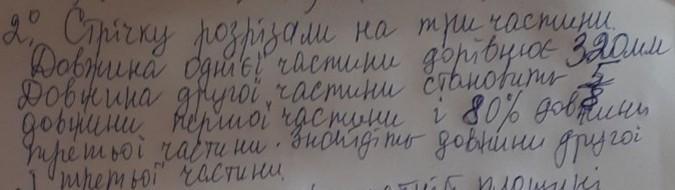 2° Стрічку розрізали на три частини.
Довжина однієї частини дорівнює 320мм
Довжина другої частини становить 5/8
довжини першої частини і 80% довжини
третьої частини. Знайдіть довжини другої
і третьої частини.